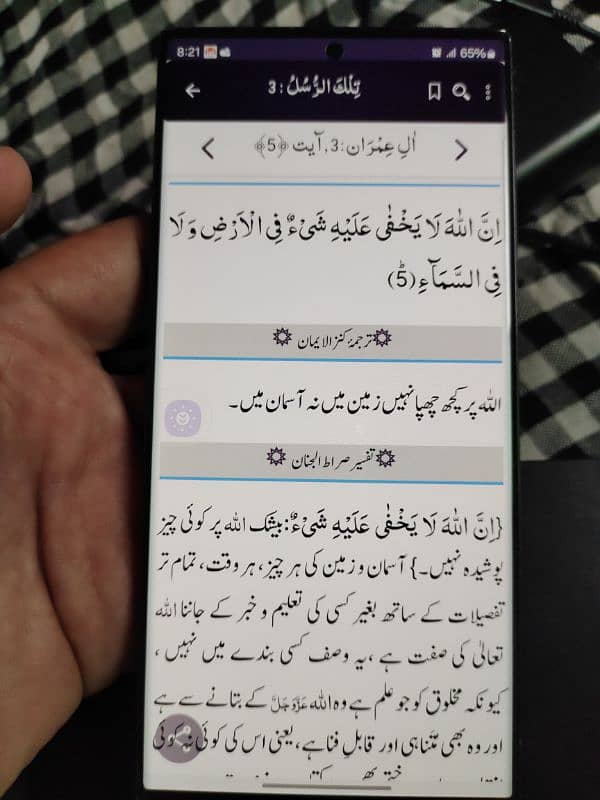 8:21 65%
تِلْكَ الرُّسُلُ : 3
اٰلِ عِمْرَان:3, آیت ﴿5﴾
اِنَّ اللّٰهَ لَا یَخْفٰى عَلَیْهِ شَیْءٌ فِی الْاَرْضِ وَ لَا
فِی السَّمَآءِؕ(5)
ترجمۂ کنز الایمان
اللہ پر کچھ چھپا نہیں زمین میں نہ آسمان میں۔
تفسیر صراط الجنان
{اِنَّ اللّٰهَ لَا یَخْفٰى عَلَیْهِ شَیْءٌ:بیشک اللہ پر کوئی چیز
پوشیدہ نہیں۔} آسمان و زمین کی ہر چیز، ہر وقت، تمام تر
تفصیلات کے ساتھ بغیر کسی کی تعلیم و خبر کے جاننا اللہ
تعالیٰ کی صفت ہے ،یہ وصف کسی بندے میں نہیں ،
کیونکہ مخلوق کو جو علم ہے وہ اللہ عَزَّوَجَلَّ کے بتانے سے ہے
اور وہ بھی متناہی اور قابلِ فنا ہے، یعنی اس کی کوئی نہ کوئی